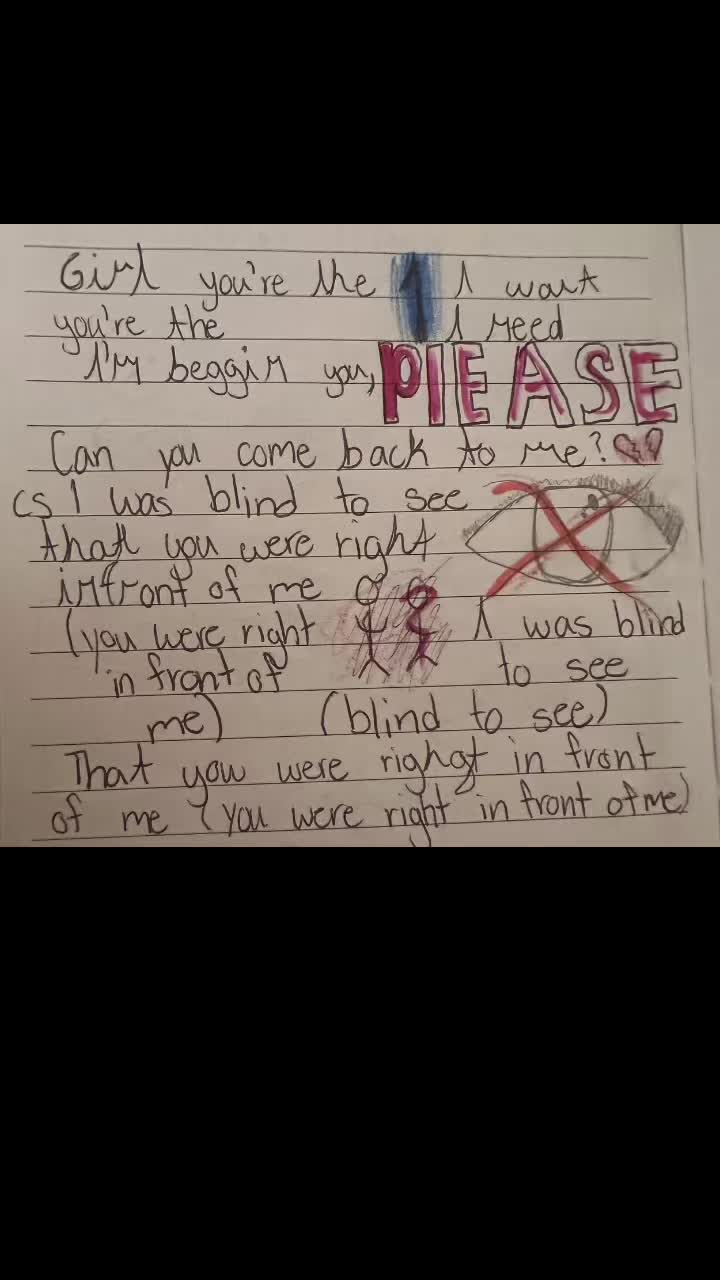 Girl you're the 1 I want
you're the I need
I'm beggin you, PlEASE
Can you come back to me?
cs I was blind to see
that you were right
infront of me
(you were right
in front of
me)
I was blind
to see
(blind to see)
That you were right in front
of me (you were right in front of me)